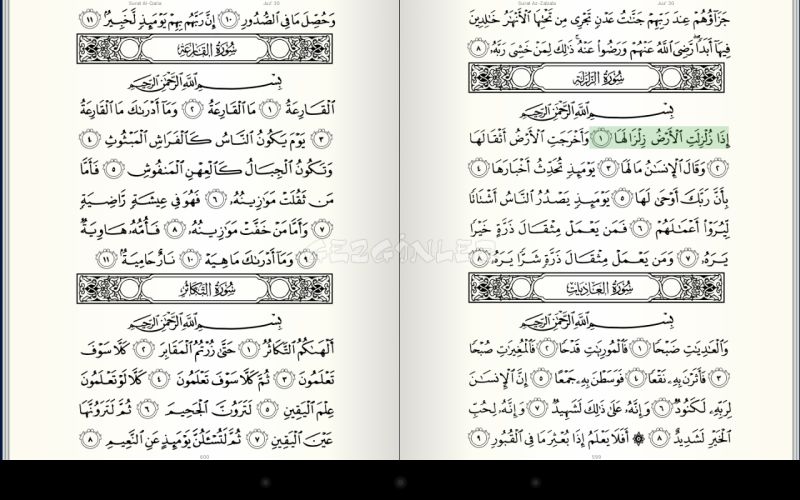 Surat Az-Zalzala
Juz' 30
جَزَآؤُهُمْ عِندَ رَبِّهِمْ جَنَّٰتُ عَدْنٍ تَجْرِى مِن تَحْتِهَا ٱلْأَنْهَٰرُ خَٰلِدِينَ
فِيهَآ أَبَدًا ۖ رَّضِىَ ٱللَّهُ عَنْهُمْ وَرَضُوا۟ عَنْهُ ۚ ذَٰلِكَ لِمَنْ خَشِىَ رَبَّهُۥ ٨
سُورَةُ الزَّلْزَلَةِ
بِسْمِ ٱللَّهِ ٱلرَّحْمَٰنِ ٱلرَّحِيمِ
إِذَا زُلْزِلَتِ ٱلْأَرْضُ زِلْزَالَهَا ١ وَأَخْرَجَتِ ٱلْأَرْضُ أَثْقَالَهَا
٢ وَقَالَ ٱلْإِنسَٰنُ مَا لَهَا ٣ يَوْمَئِذٍ تُحَدِّثُ أَخْبَارَهَا ٤
بِأَنَّ رَبَّكَ أَوْحَىٰ لَهَا ٥ يَوْمَئِذٍ يَصْدُرُ ٱلنَّاسُ أَشْتَاتًا
لِّيُرَوْا۟ أَعْمَٰلَهُمْ ٦ فَمَن يَعْمَلْ مِثْقَالَ ذَرَّةٍ خَيْرًا
يَرَهُۥ ٧ وَمَن يَعْمَلْ مِثْقَالَ ذَرَّةٍ شَرًّا يَرَهُۥ ٨
سُورَةُ العَادِيَاتِ
بِسْمِ ٱللَّهِ ٱلرَّحْمَٰنِ ٱلرَّحِيمِ
وَٱلْعَٰدِيَٰتِ ضَبْحًا ١ فَٱلْمُورِيَٰتِ قَدْحًا ٢ فَٱلْمُغِيرَٰتِ صُبْحًا
٣ فَأَثَرْنَ بِهِۦ نَقْعًا ٤ فَوَسَطْنَ بِهِۦ جَمْعًا ٥ إِنَّ ٱلْإِنسَٰنَ
لِرَبِّهِۦ لَكَنُودٌ ٦ وَإِنَّهُۥ عَلَىٰ ذَٰلِكَ لَشَهِيدٌ ٧ وَإِنَّهُۥ لِحُبِّ
ٱلْخَيْرِ لَشَدِيدٌ ٨ ۞ أَفَلَا يَعْلَمُ إِذَا بُعْثِرَ مَا فِى ٱلْقُبُورِ ٩
599
Surat Al-Qaria
Juz' 30
وَحُصِّلَ مَا فِى ٱلصُّدُورِ ١٠ إِنَّ رَبَّهُم بِهِمْ يَوْمَئِذٍ لَّخَبِيرٌۢ ١١
سُورَةُ القَارِعَةِ
بِسْمِ ٱللَّهِ ٱلرَّحْمَٰنِ ٱلرَّحِيمِ
ٱلْقَارِعَةُ ١ مَا ٱلْقَارِعَةُ ٢ وَمَآ أَدْرَىٰكَ مَا ٱلْقَارِعَةُ
٣ يَوْمَ يَكُونُ ٱلنَّاسُ كَٱلْفَرَاشِ ٱلْمَبْثُوثِ ٤
وَتَكُونُ ٱلْجِبَالُ كَٱلْعِهْنِ ٱلْمَنفُوشِ ٥ فَأَمَّا
مَن ثَقُلَتْ مَوَٰزِينُهُۥ ٦ فَهُوَ فِى عِيشَةٍ رَّاضِيَةٍ
٧ وَأَمَّا مَنْ خَفَّتْ مَوَٰزِينُهُۥ ٨ فَأُمُّهُۥ هَاوِيَةٌ
٩ وَمَآ أَدْرَىٰكَ مَا هِيَهْ ١٠ نَارٌ حَامِيَةٌۢ ١١
سُورَةُ التَّكَاثُرِ
بِسْمِ ٱللَّهِ ٱلرَّحْمَٰنِ ٱلرَّحِيمِ
أَلْهَىٰكُمُ ٱلتَّكَاثُرُ ١ حَتَّىٰ زُرْتُمُ ٱلْمَقَابِرَ ٢ كَلَّا سَوْفَ
تَعْلَمُونَ ٣ ثُمَّ كَلَّا سَوْفَ تَعْلَمُونَ ٤ كَلَّا لَوْ تَعْلَمُونَ
عِلْمَ ٱلْيَقِينِ ٥ لَتَرَوُنَّ ٱلْجَحِيمَ ٦ ثُمَّ لَتَرَوُنَّهَا
عَيْنَ ٱلْيَقِينِ ٧ ثُمَّ لَتُسْـَٔلُنَّ يَوْمَئِذٍ عَنِ ٱلنَّعِيمِ ٨
600
GEZGİNLER